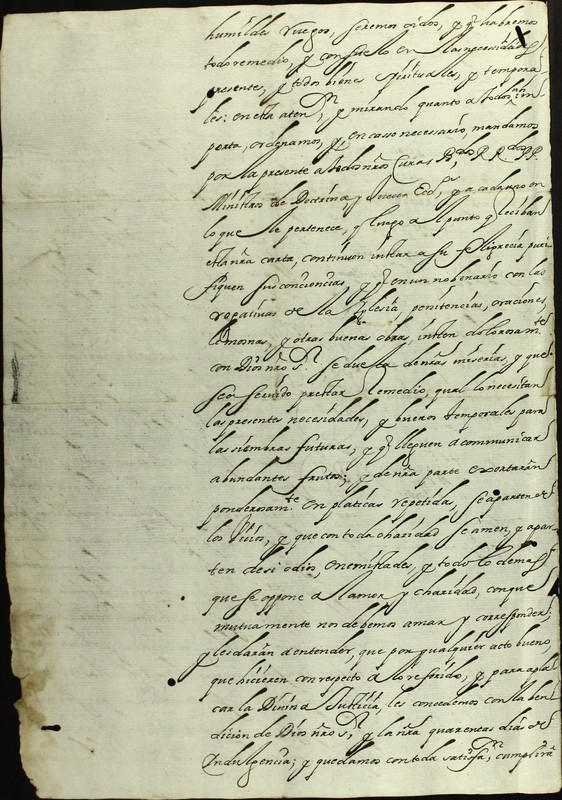 humildes ruegos, seremos oidos, y q.e habremos
todo remedio, y consuelo en las necesidades
presentes, y todos bienes spirituales, y tempora
les: en esta aten.on, y mirando quanto a todos nos im
porta, ordenamos, y en casso necessario, mandamos
por la presente a todos nros Curas B.dos R.dos PP.
Ministros de Doctrina, y a cada uno en
lo que le pertenece, q luego a el punto q reciban
esta nra carta, continuen instar a su feligrecia puri
fiquen sus conciencias, y q en un nobenario con las
rogativas de la Iglesia, penitencias, oraciones,
limosnas, y otras buenas obras, insten dolorosam.te
con Dios nro S.r se duela de nras miserias, y que
sea servido prestar remedio, qual lo necesitan
las presentes necesidades, y buenos temporales para
las siembras futuras, y q lleguen a communicar
abundantes frutos; y de nra parte exortarán
ponderosam.te en platicas repetidas, se aparten de
los vicios, y que con toda charidad se amen, y apar
ten de si odios, enemistades, y todo lo demas
que se oppone a el amor y charidad, con que
mutuamente nos debemos amar y corresponder;
y les darán a entender, que por qualquier acto bueno
que hicieren con respecto a lo referido, y para apla
car la Divina Justicia, les concedemos con la ben
dición de Dios nro S.r y la nra quarenta dias de
Indulgencia; y quedamos con toda satisfa.on, cumplirán